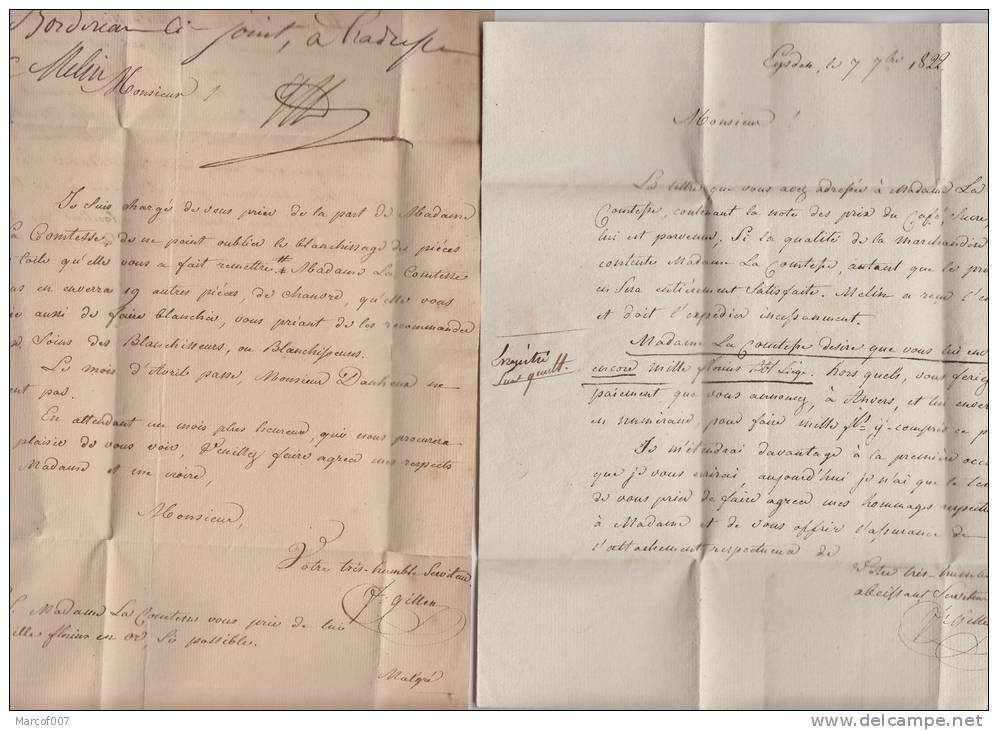 Bordereau ci-joint, à l'adresse
Melin
Monsieur,
Je suis chargé de vous prier de la part de Madame
La Comtesse, de ne point oublier le blanchissage des pièces
toile qu'elle vous a fait remettre. Madame La Comtesse
en enverra 19 autres pièces, de chanvre, qu'elle vous
aussi de faire blanchir, vous priant de les recommander
Soins des Blanchisseurs, ou Blanchisseuses.
Le mois d'Avril passé, Monsieur ne
pas.
En attendant un mois plus heureux, qui nous procurera
plaisir de vous voir, Veuillez faire agréer mes respects
Madame et me croire,
Monsieur,
Votre très-humble Serviteur
Gillen
Madame La Comtesse vous prie de lui
florins en or, si possible.
Malgré
Eysden, le 7 7bre 1822
Monsieur
La lettre que vous avez adressée à Madame La
Comtesse, contenant la note des prix du Café, Sucre,
lui est parvenue. Si la qualité de la marchandise
contente Madame La Comtesse, autant que le pri
en sera entièrement satisfaite. Melin a reçu l'
et doit l'expédier incessament.
Madame La Comtesse désire que vous lui en
encore mille florins Bt Liége. hors quels, vous feriez
paiement que vous annoncez, à Anvers, et lui enver
en numéraire, pour faire mille fls y-compris ce p
Je m'étendrai davantage à la première occ
que je vous écrirai, aujourd'hui je n'ai que le tem
de vous prier de faire agréer mes hommages respectu
à Madame et de vous offrir l'assurance de
l'attachement respectueux de
Votre très-humble
obéissant Serviteur
Gillen
Marcof007
delcampe.net